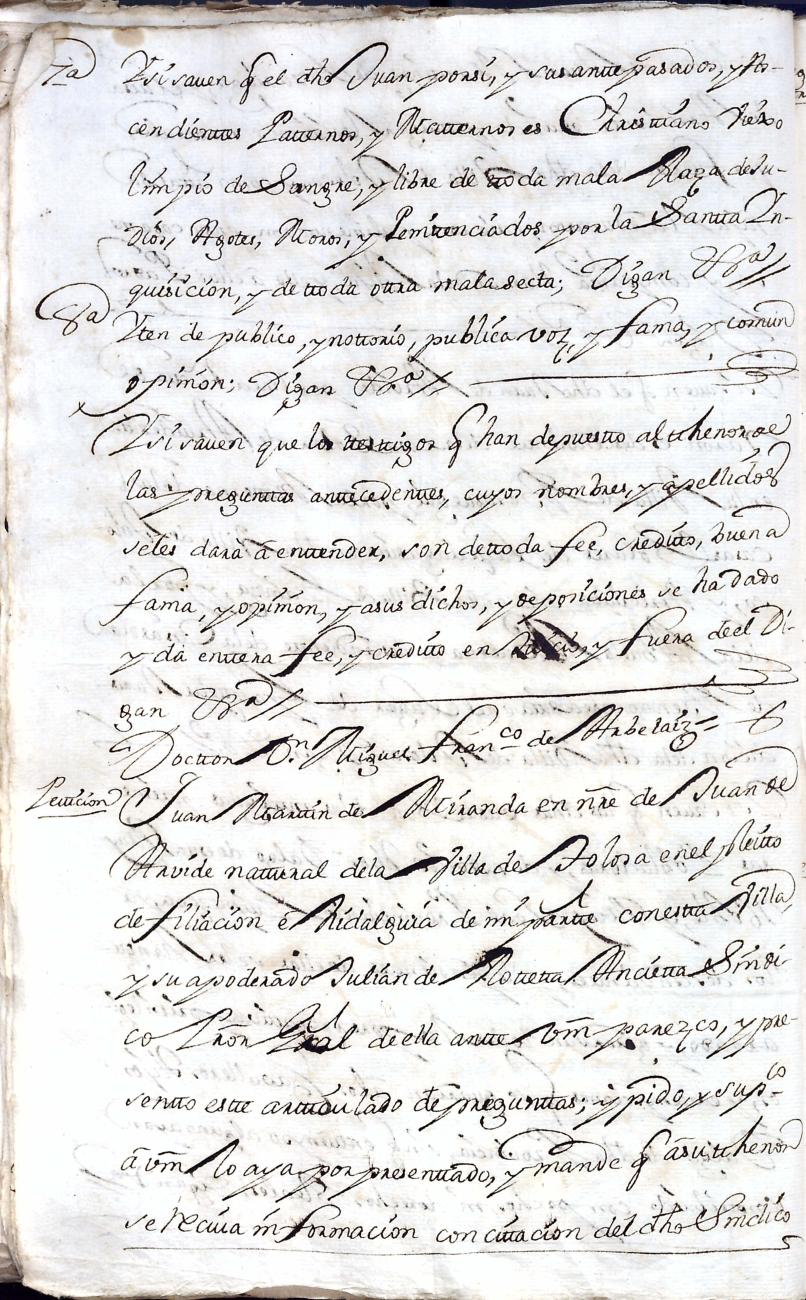 7a Y si saven q el dho Juan por si, y sus antte pasados, y As-
cendienttes Patternos, y Matternos es Christtiano viexo
limpio de Sangre, y libre de ttoda mala Raza de Ju-
dios, Agotes, Moros, y Penitenciados por la Santta In-
quisicion, y de ttoda ottra mala secta; Digan &a //
8a Yten de publico, y nottorio, publica voz, y fama, y comun
opinion; Digan &a //
Y si saven que los testtigos q han depuestto al tthenor de
las pregunttas anttecedenttes, cuyos nombres, y apellidos
seles darà à enttender, son de ttoda fee, creditto, buena
fama, y opinion, y asus dichos, y deposiciones se ha dado
y dà enttera fee, y creditto en Juicio, y fuera de el Di-
gan &a //
Docttor Dn Miguel Franco de Arbelaiz =
Petticion Juan Marttin de Miranda en nre de Juan de
Arvide natural dela Villa de Tolosa en el pleitto
de filiacion è hidalguia de mi partte con estta Villa,
y su apoderado Julian de Rotteta Ancietta Sindi-
co Prôr Gral de ella antte vm parezco, y pre-
sentto estte artticulado de pregunttas; y pido, y supco
à vm lo aya por presenttado, y mande q a su tthenor
se reciva informacion con cittacion del dho Sindico